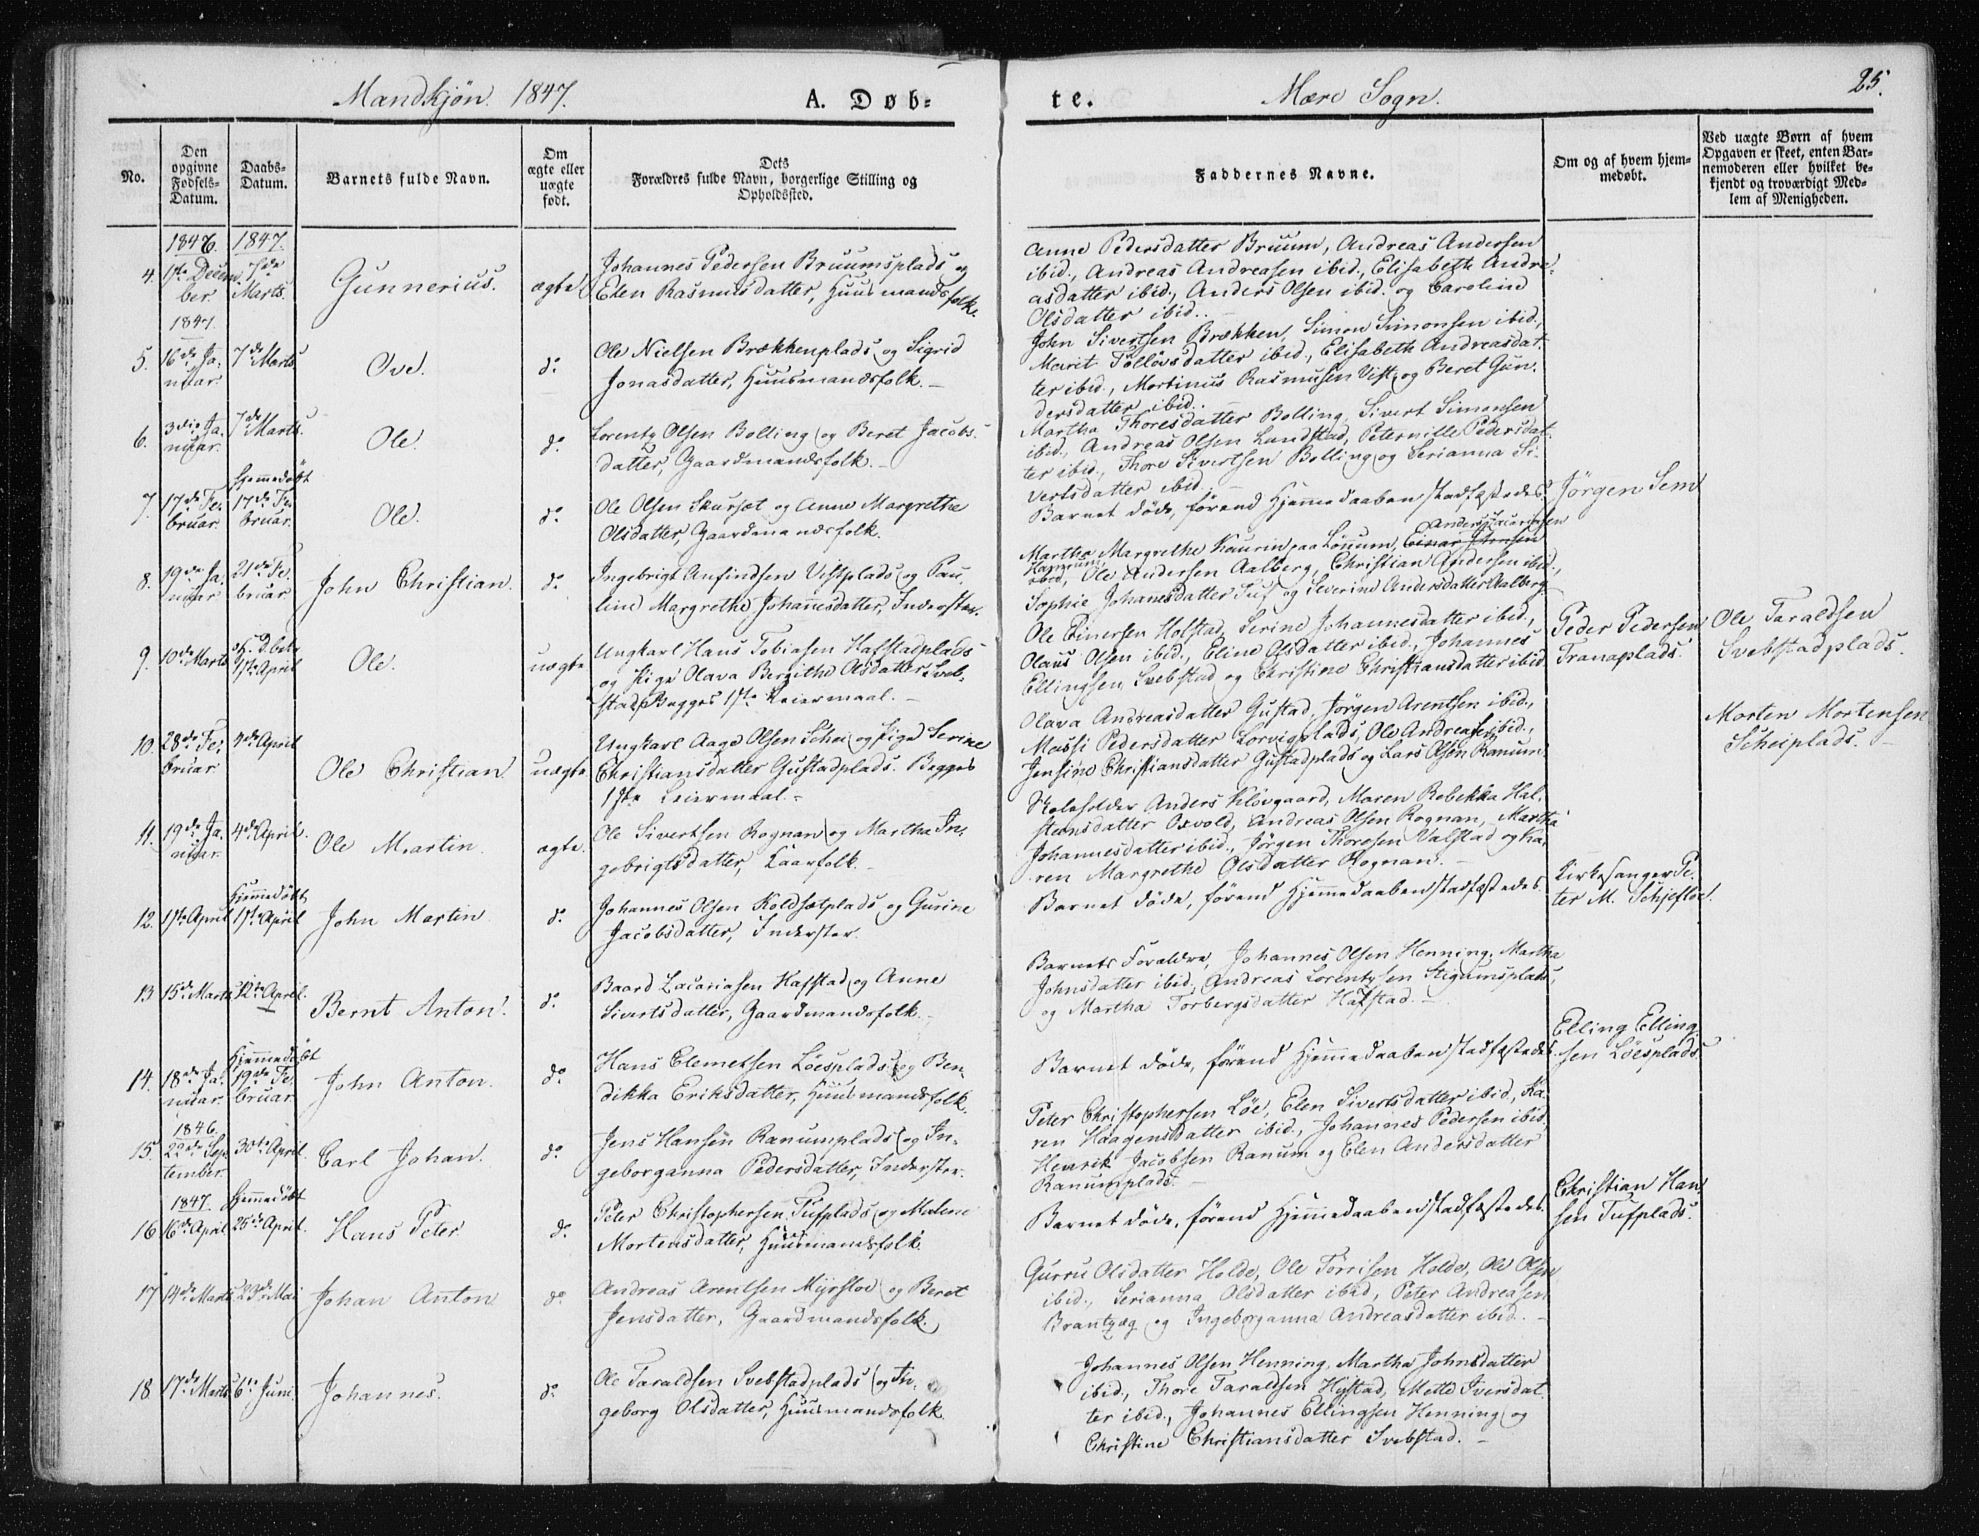 Mandkjøn. 1847.
A. Døb-
te.
Mære Sogn.
25.
No.
Den
opgivne
Fødsels-
Datum.
Daabs-
Datum.
Barnets fulde Navn.
Om
ægte eller
uægte
født.
Dets
Forældres fulde Navn, borgerlige Stilling og
Opholdssted.
Faddernes Navne.
Om og af hvem hjem-
medøbt.
Ved uægte Børn af hvem
Opgaven er skeet, enten Bar-
nemoderen eller hvilket be-
kjendt og troværdigt Med-
lem af Menigheden.
1846. 1847.
4. 1ste Decem- 7de
ber. Marts.
Gunnerius.
ægte
Johannes Pedersen Bruumsplads og
Elen Rasmusdatter, Huusmandsfolk.
Anne Pedersdatter Bruum, Andreas Andersen
ibid., Andreas Andreasen ibid., Elisabeth Andre-
asdatter ibid., Anders Olsen ibid. og Caroline
Olsdatter ibid..
1847.
5. 16de Ja- 7de Marts
nuar.
Ove.
do
Ole Nielsen Brækkenplads og Sigrid
Jonasdatter, Huusmandsfolk.
John Sivertsen Brækken, Simon Simonsen ibid.,
Marit Tollövsdatter ibid., Elisabeth Andreasdat-
ter ibid., Martinus Rasmusen Vist, og Beret Gun-
dersdatter ibid..
6. 3die Ja- 7de Marts.
nuar.
Ole.
do
Lorentz Olsen Bolling og Beret Jacobs-
datter, Gaardmandsfolk.
Martha Thoresdatter Bolling, Sivert Simonsen
ibid., Andreas Olsen Lundstad, Peternille Pedersdat-
ter ibid., Thore Sivertsen Bolling og Serianna Si-
vertsdatter ibid.
Hjemmedöbt
7. 17de Fe- 17de Fe-
bruar. bruar.
Ole.
do
Ole Olsen Skurset og Anne Margrethe
Olsdatter, Gaardmandsfolk.
Barnet döde, förend Hjemmedaaben stadfæstedes.
Jörgen Sem
8. 19de Ja- 21de Fe-
nuar. bruar
John Christian.
do
Ingebrigt Anfindsen Vistplads og Pau-
line Margrethe Johannesdatter, Inderster.
Martha Margrethe Kaurin paa Lönnum,
ibid., Ole Andersen Aalberg, Christian Andersen ibid.,
Sophie Johannesdatter Tuf og Severine Andersdatter Aalberg.
9. 10de Marts
1ste April
Ole.
uægte
Ungkarl Hans Tobiasen Hafstadplads
og Pige Olava Bergithe Olsdatter Sveb-
stadp. Begges 1ste Leiermaal.
Ole Einersen Holstad, Serine Johannesdatter ibid.,
Olaus Olsen ibid., Eline Olsdatter ibid., Johannes
Ellingsen Svebstad og Christine Christiansdatter ibid.
Peder Pedersen
Tranaplads.
Ole Taraldsen
Svebstadplads.
10. 28de Fe- 4de April
bruar
Ole Christian.
uægte
Ungkarl Aage Olsen Schei og Pige Serine
Christiansdatter Gustadplads. Begges
1ste Leiermaal.
Olava Andreasdatter Gustad, Jörgen Arentsen ibid.,
Massi Pedersdatter Lorvigplads, Ole Andreasen ibid.,
Jensine Christiansdatter Gustadplads og Lars Olsen Ranum.
Morten Mortensen
Scheiplads.
11. 19de Ja- 4de April.
nuar.
Ole Martin.
ægte.
Ole Sivertsen Rognan og Martha In-
gebrigtsdatter, Kaarfolk.
Skoleholder Anders Klövgaard, Maren Rebekka Hal-
steensdatter Oxvold, Andreas Olsen Rognan, Martha
Johannesdatter ibid., Jörgen Thoresen Valstad og Ka-
ren Margrethe Olsdatter Rognan.
Hjemmedöbt
12. 1ste April 1ste April
John Martin
do
Johannes Olsen Koldsetplads og Gurine
Jacobsdatter, Inderster.
Barnet döde, förend Hjemmedaaben stadfæstedes.
Kirkesanger Pe-
ter M. Schjefloe.
13 15de Marts 12te April.
Bernt Anton.
do
Baard Zacariasen Hafstad og Anne
Sivertsdatter, Gaardmandsfolk.
Barnets Forældre, Johannes Olsen Henning, Martha
Johnsdatter ibid, Andreas Lorentzsen Stigumsplads,
og Martha Torbergsdatter Hafstad.
Hjemmedöbt
14. 18de Ja- 19de Fe-
nuar. bruar.
John Anton.
do
Hans Clemetsen Löesplads og Ben-
dikka Eriksdatter, Huusmandsfolk.
Barnet döde, förend Hjemmedaaben stadfæstedes.
Elling Elling-
sen Löesplads.
1846.
15. 22de Sep- 30te April.
tember.
Carl Johan.
do
Jens Hansen Ranumplads og In-
geborganna Pedersdatter, Inderster.
Peter Christophersen Löe, Elen Sivertsdatter ibid., Ka-
ren Haagensdatter ibid., Johannes Pedersen ibid.,
Henrik Jacobsen Ranum og Elen Andersdatter
Ranumplads.
1847. Hjemmedöbt
16 16de April 25de April.
Hans Peter
do
Peter Christophersen Tufplads og Malene
Mortensdatter, Huusmandsfolk.
Barnet döde, förend Hjemmedaaben stadfæstedes.
Christian Han-
sen Tufplads.
17 14de Marts 23de Mai
Johan Anton
do
Andreas Arentsen Myrstoe og Beret
Jensdatter, Gaardmandsfolk.
Gurru Olsdatter Holde, Ole Torrisen Holde, Ole Olsen
ibid., Serianna Olsdatter ibid, Peter Andreasen
Brantzæg og Ingeborganna Andreasdatter ibid.
18 17de Marts 6te Juni.
Johannes.
do
Ole Taraldsen Svebstadplads og In-
geborg Olsdatter, Huusmandsfolk
Johannes Olsen Henning, Martha Johnsdatter
ibid., Thore Taraldsen Hÿstad, Mette Iversdat-
ter ibid., Johannes Ellingsen Henning og
Christine Christiansdatter Svebstad.